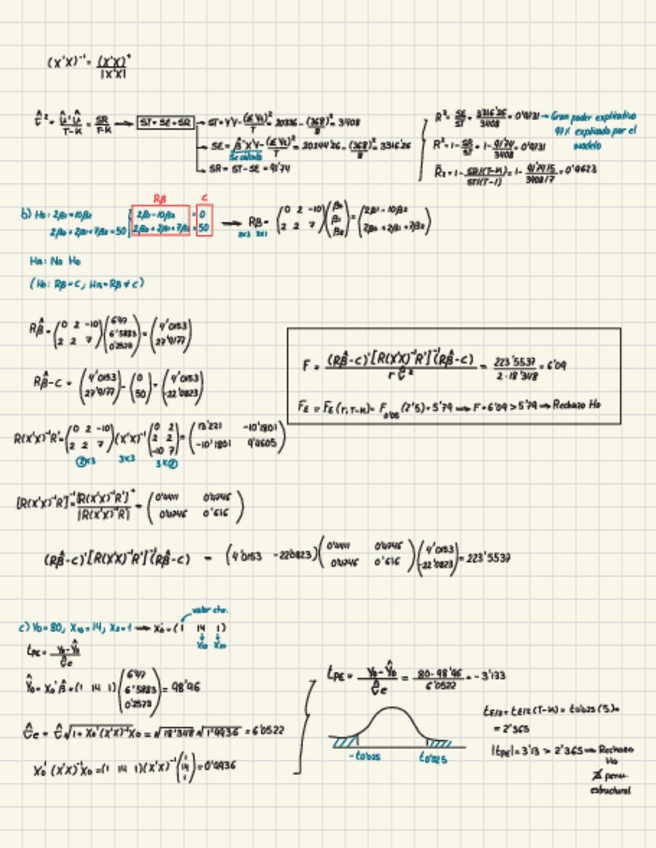 (X'X)⁻¹ = (X'X)⁺ / |X'X|
σ̂² = Û'Û / T-K = SR / T-K → ST = SE + SR
→ ST = Y'Y - (ΣYt)²/T = 20336 - (368)²/8 = 3408
→ SE = β̂'X'Y - (ΣYt)²/T = 20244'26 - (368)²/8 = 3316'26
→ SR = ST - SE = 91'74
R² = SE/ST = 3316'26/3408 = 0'9731 → Gran poder explicativo
97% explicado por el
modelo
R² = 1 - SR/ST = 1 - 91'74/3408 = 0'9731
R̄² = 1 - SR/(T-K) / ST/(T-1) = 1 - 91'74/5 / 3408/7 = 0'9623
Rβ C
b) H₀: 2β₁ = 10β₂ 2β₁ - 10β₂ = 0
2β₀ + 2β₁ + 7β₂ = 50 2β₀ + 2β₁ + 7β₂ = 50
→ Rβ = (0 2 -10 / 2 2 7)(β₀ / β₁ / β₂) = (2β₁ - 10β₂ / 2β₀ + 2β₁ + 7β₂)
2x3 3x1
Ha: No H₀
(H₀: Rβ = C, Ha = Rβ ≠ C)
Rβ̂ = (0 2 -10 / 2 2 7)(6'47 / 6'5883 / 0'2573) = (4'0153 / 27'9177)
Rβ̂ - C = (4'0153 / 27'9177) - (0 / 50) = (4'0153 / -22'0823)
F = (Rβ̂-C)'[R(X'X)⁻¹R']⁻¹(Rβ̂-C) / r σ̂² = 223'5537 / 2·18'348 = 6'09
Fε = Fε(r, T-K) = F₀'₀₅(2'5) = 5'79 → F = 6'09 > 5'79 → Rechazo H₀
R(X'X)⁻¹R' = (0 2 -10 / 2 2 7)(X'X)⁻¹(0 2 / 2 2 / -10 7) = (13'221 -10'1801 / -10'1801 9'4605)
2x3 3x3 3x2
[R(X'X)⁻¹R']⁻¹ = [R(X'X)⁻¹R']⁺ / |R(X'X)⁻¹R'| =
(Rβ̂-C)'[R(X'X)⁻¹R']⁻¹(Rβ̂-C) = (4'0153 -22'0823) (4'0153 / -22'0823) = 223'5537
valor cte.
c) Y₀ = 80, X₁₀ = 14, X₂₀ = 1 → X₀' = (1 14 1)
X₁₀ X₂₀
tPE = Y₀ - Ŷ₀ / σ̂e
Ŷ₀ = X₀'β̂ = (1 14 1)(6'47 / 6'5883 / 0'2573) = 98'96
σ̂e = σ̂ √1 + X₀'(X'X)⁻¹X₀ = √18'348 √1'9936 = 6'0522
X₀'(X'X)⁻¹X₀ = (1 14 1)(X'X)⁻¹(1 / 14 / 1) = 0'9936
tPE = Y₀ - Ŷ₀ / σ̂e = 80 - 98'96 / 6'0522 = -3'133
-t₀'₀₂₅ t₀'₀₂₅
tε/₂ = tε/₂(T-K) = t₀'₀₂₅(5) =
= 2'365
|tPE| = 3'13 > 2'365 → Rechazo
H₀
estructural